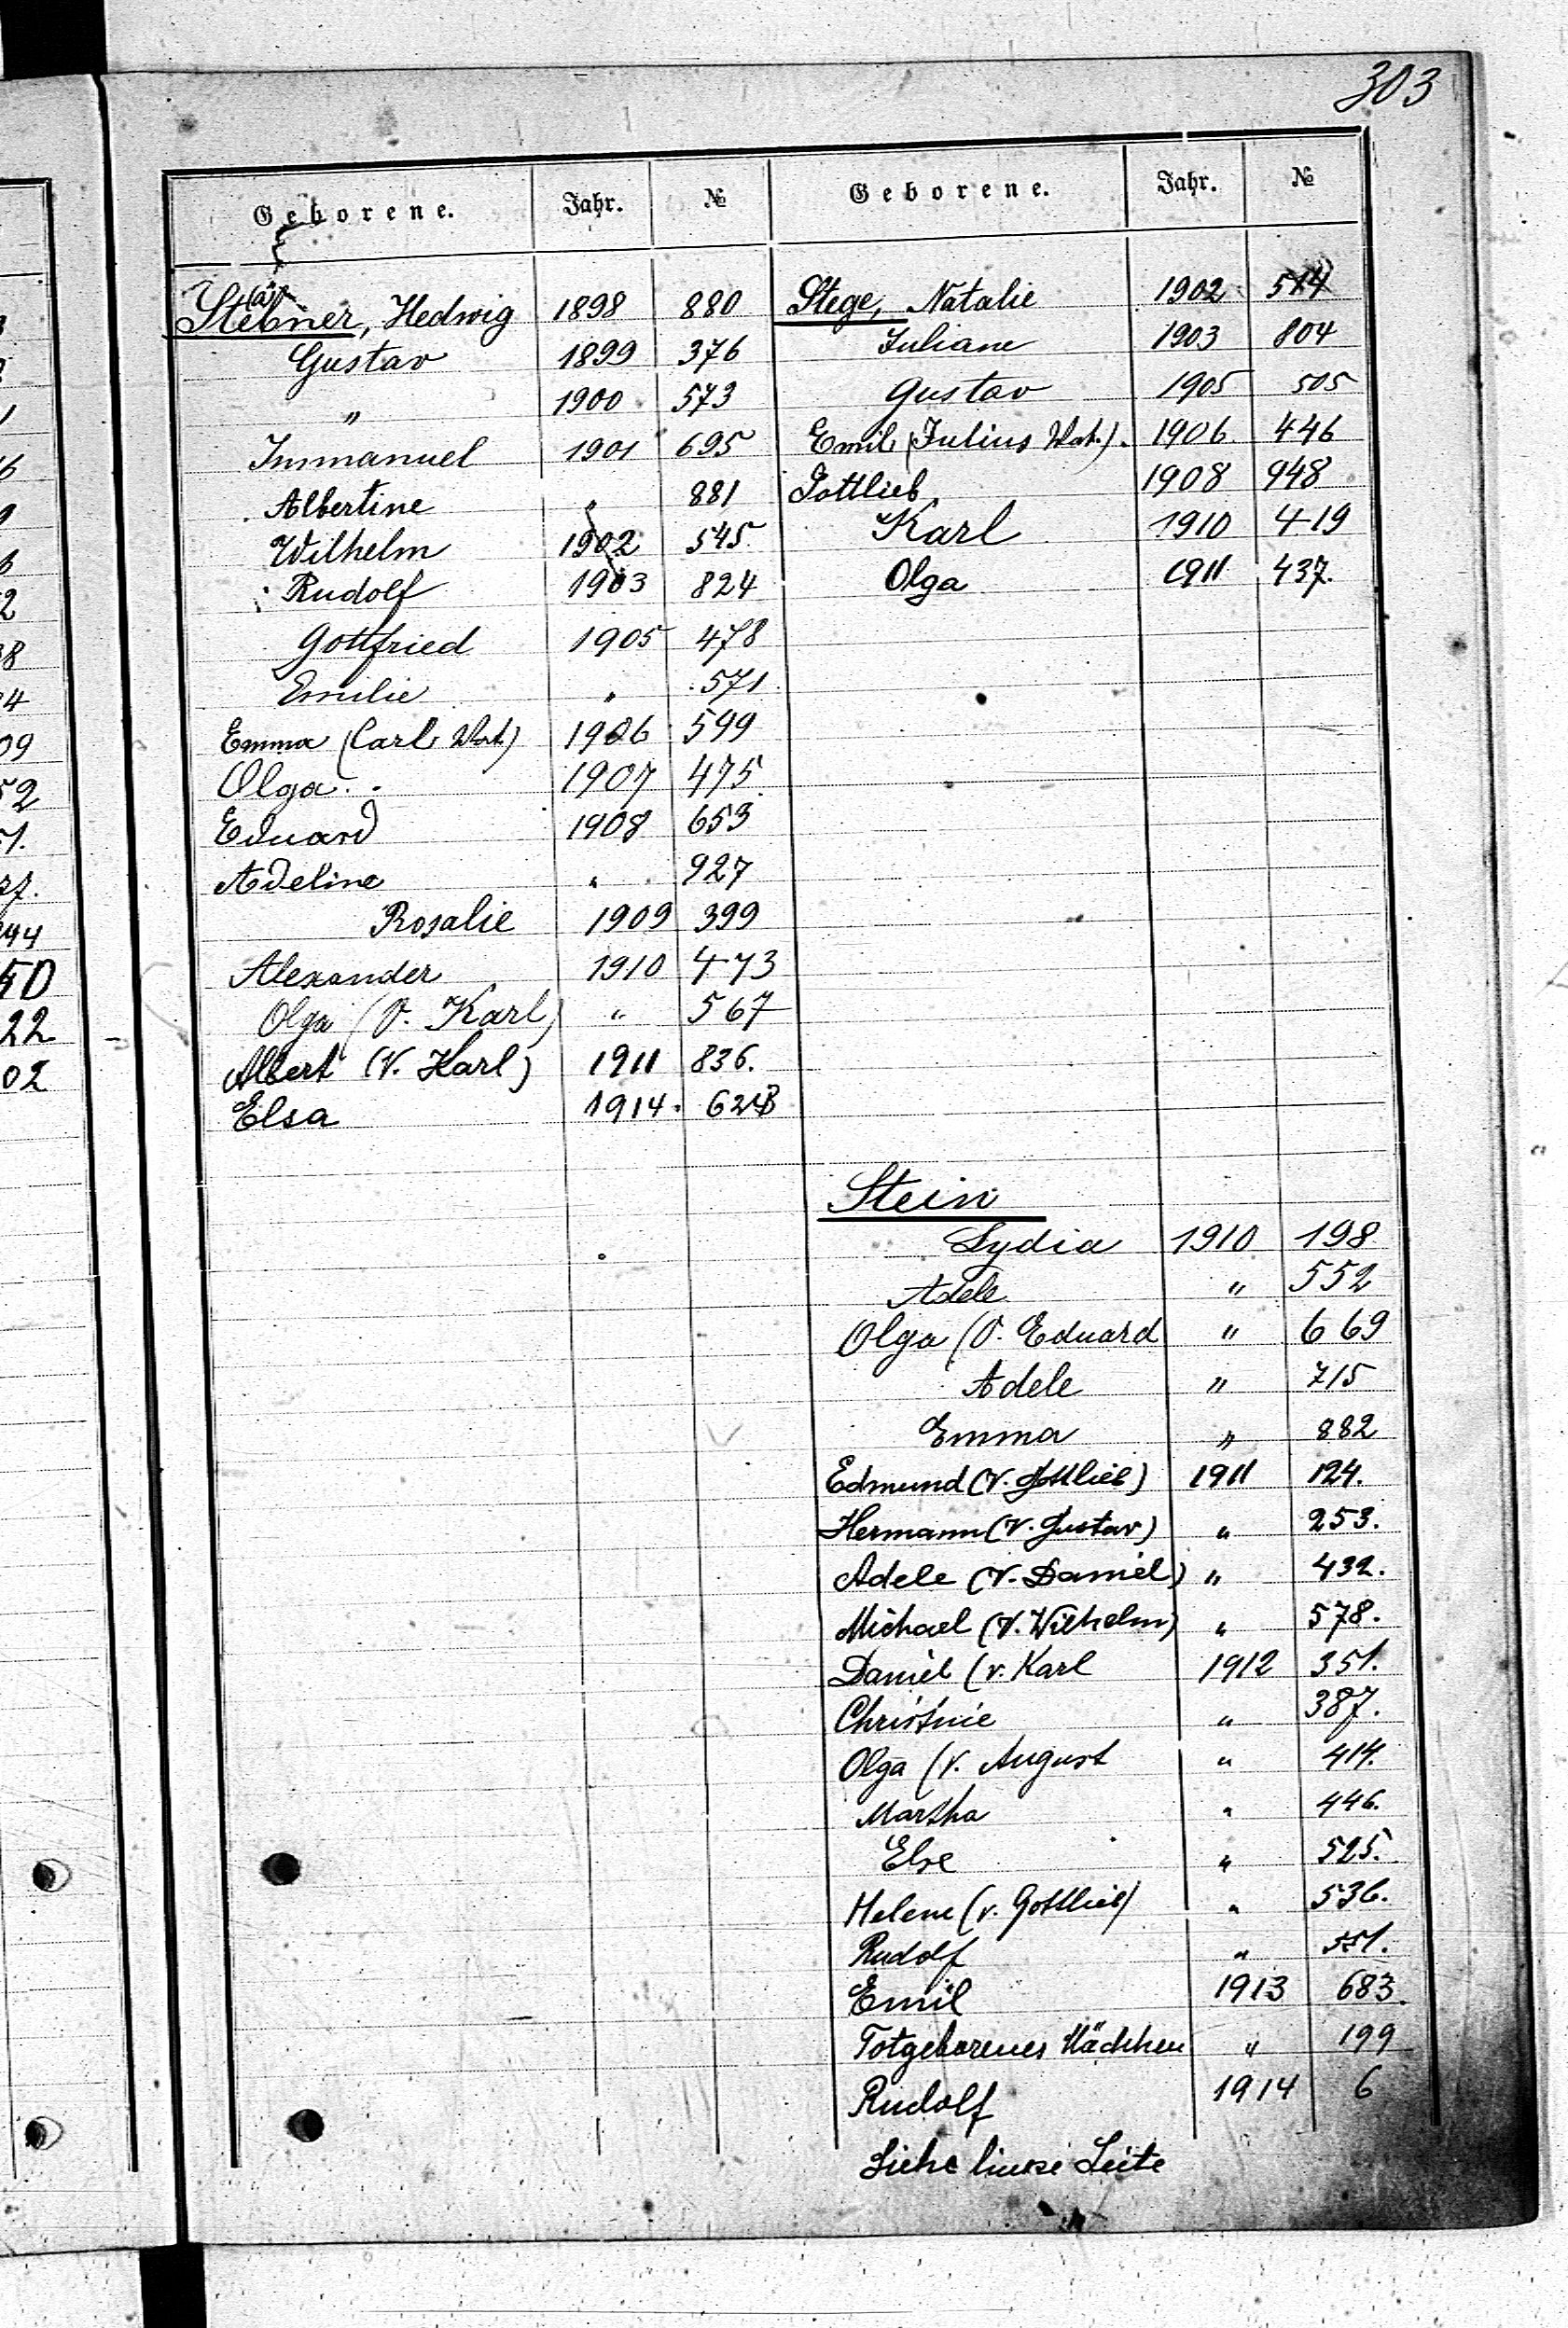 303
Geborene. Jahr. №
Stebner, Hedwig 1898 880
(ä)
Gustav 1899 376
" 1900 573
Immanuel 1901 695
Albertine " 881
Wilhelm 1902 545
Rudolf 1903 824
Gottfried 1905 478
Emilie " 571
Emma (Carl Wat.) 1906 599
Olga 1907 475
Eduard 1908 653
Adeline " 927
Rosalie 1909 399
Alexander 1910 473
Olga (V. Karl) " 567
Albert (V. Karl) 1911 836.
Elsa 1914. 628
Geborene. Jahr. №
Stege, Natalie 1902 514
Juliane 1903 804
Gustav 1905 505
Emil (Julius Wat.). 1906 446
Gottlieb 1908 948
Karl 1910 419
Olga 1911 437.
Stein
Lydia 1910 198
Adele " 552
Olga (V. Eduard " 669
Adele " 715
Emma " 882
Edmund (V. Gottlieb) 1911 124.
Hermann (V. Gustav) " 253.
Adele (V. Daniel) " 432.
Michael (V. Wilhelm) " 578.
Daniel (v. Karl 1912 351.
Christine " 387.
Olga (V. August " 414.
Martha " 446.
Else " 525.
Helene (v. Gottlieb) " 536.
Rudolf " 551.
Emil 1913 683.
Totgeborenes Mädchen " 199
Rudolf 1914 6
Siehe linke Seite